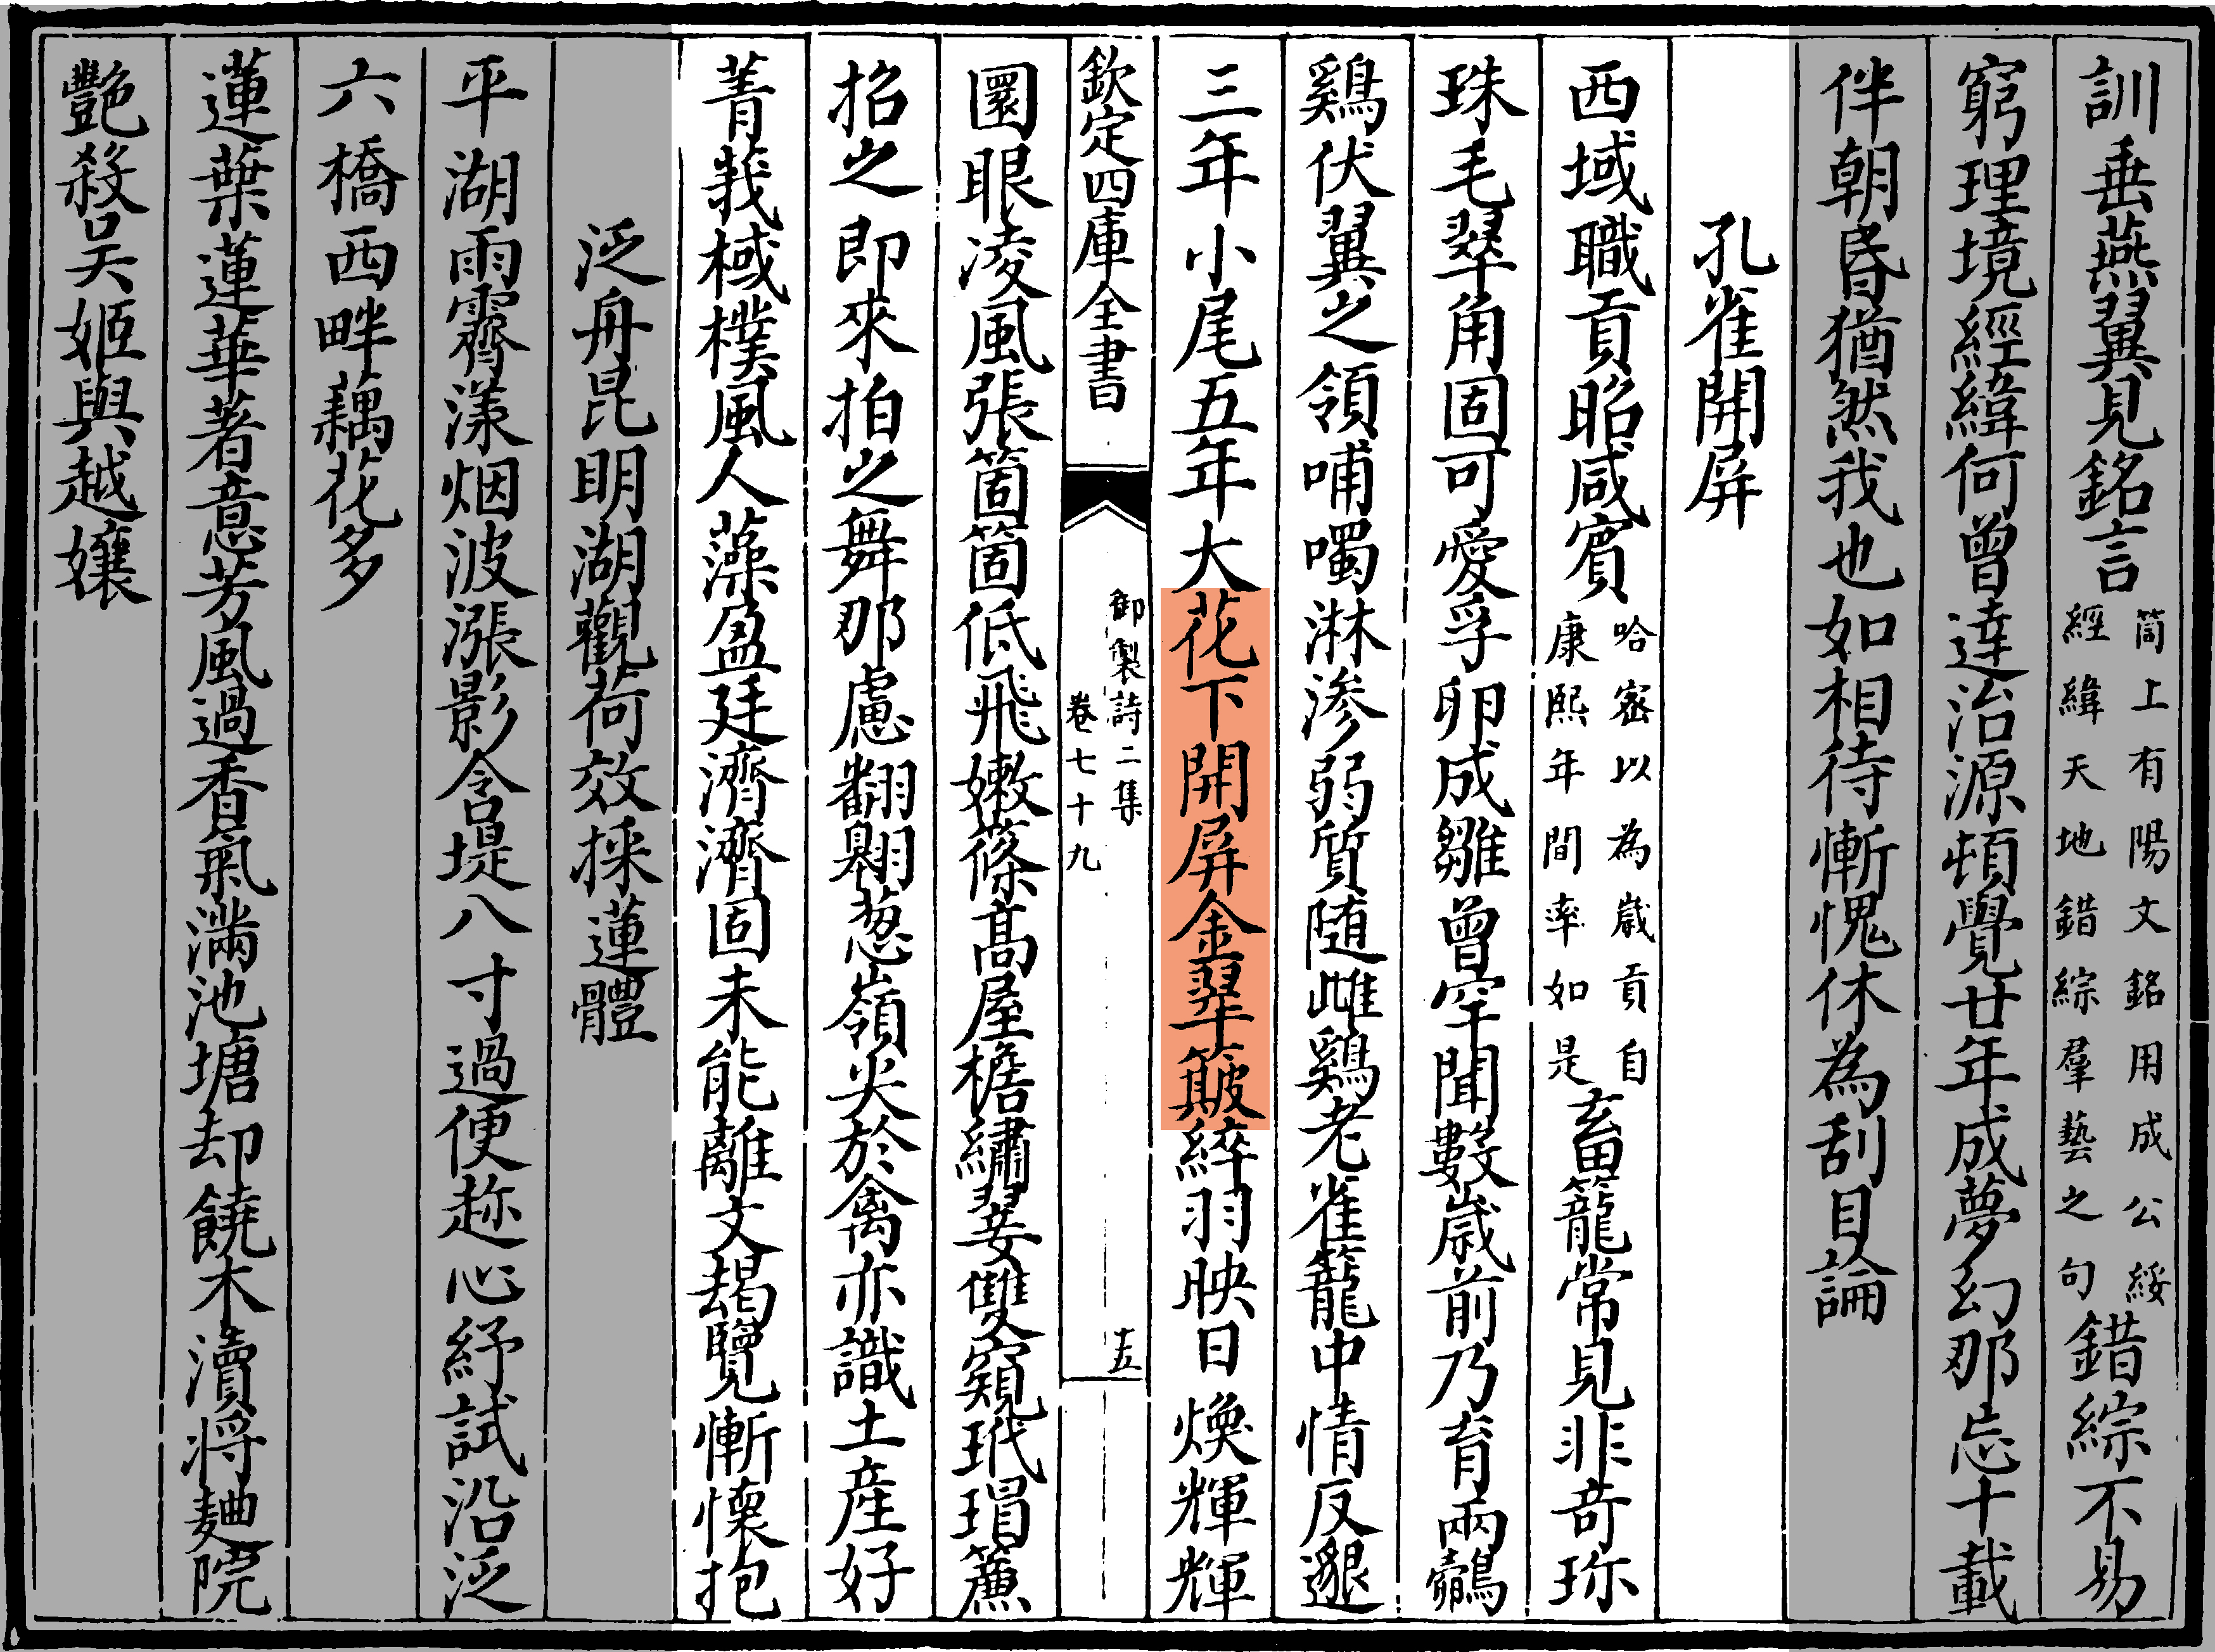 訓垂燕翼見銘言筒上有陽文銘用成公綏經緯天地錯綜羣藝之句錯綜不易
窮理境經緯何曾達治源頓覺廿年成夢幻那忘十載
伴朝昏猶然我也如相待慚愧休為刮目論
孔雀開屏
西域職貢昭咸賓哈密以為歲貢自康熙年間率如是畜籠常見非奇珎
珠毛翠角固可愛孚卵成雛曾罕聞數歲前乃育兩鷮
鷄伏翼之領哺噣淋滲弱質随雌鷄老雀籠中情反邈
三年小尾五年大花下開屏金翠簸綷羽映日煥輝輝
欽定四庫全書
御製詩二集
卷七十九
十五
圜眼凌風張箇箇低飛嫩篠高屋檐繡翣雙窺玳瑁簾
招之即來拍之舞那慮翻翺葱嶺尖於禽亦識土産好
菁莪棫樸風人藻盈廷濟濟固未能離文朅覽慚懷抱
泛舟昆明湖觀荷效採蓮體
平湖雨霽漾烟波漲影含堤八寸過便趂心紓試沿泛
六橋西畔藕花多
蓮葉蓮華著意芳風過香氣滿池塘却饒木瀆將麯院
艷殺吴姬與越孃